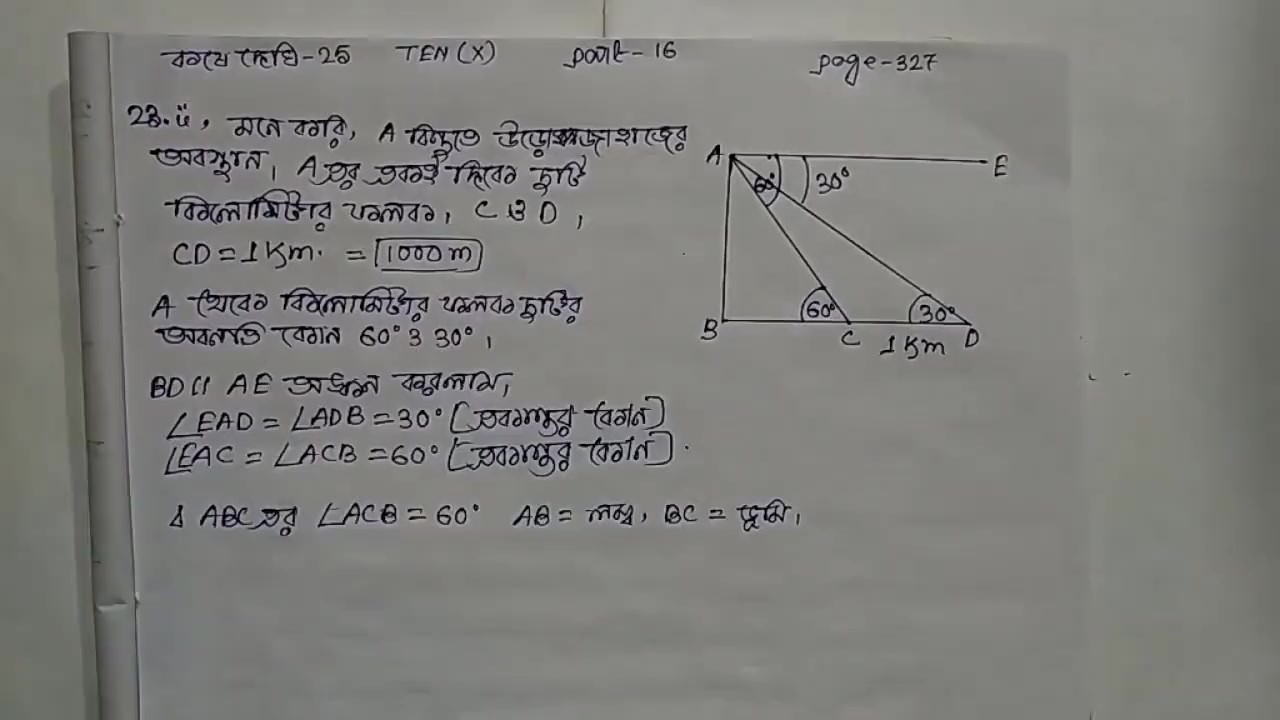 কষে দেখি-25 TEN (X) part-16 page-327
23.ii, মনে করি, A বিন্দুতে উড়োজাহাজের
অবস্থান, A এর একই দিকে দুটি
কিলোমিটার ফলক, C ও D,
CD = 1 Km. = 1000 m
A থেকে কিলোমিটার ফলক দুটির
অবনতি কোন 60° ও 30°,
BD || AE অঙ্কন করলাম,
∠EAD = ∠ADB = 30° [একান্তর কোন]
∠EAC = ∠ACB = 60° [একান্তর কোন].
Δ ABC এর ∠ACB = 60° AB = লম্ব, BC = ভূমি,
A E
60° 30°
60° 30°
B C 1 Km D